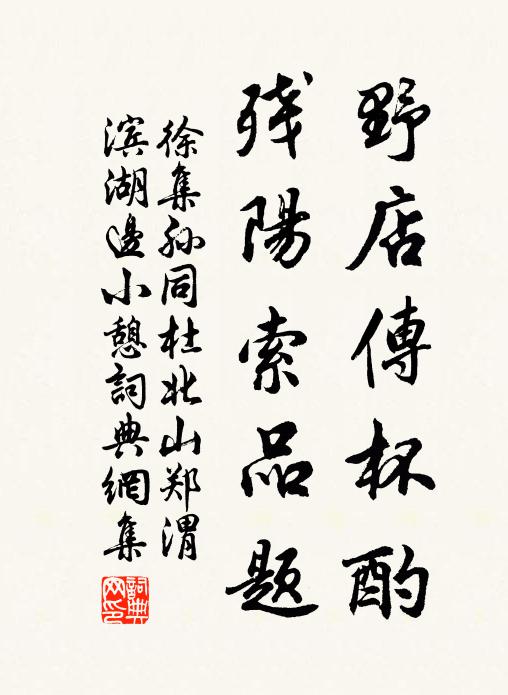 野店傳杯酌
残陽索品题
徐集孙同杜北山郑渭
滨湖邊小憩詞典網集
詞典
网印